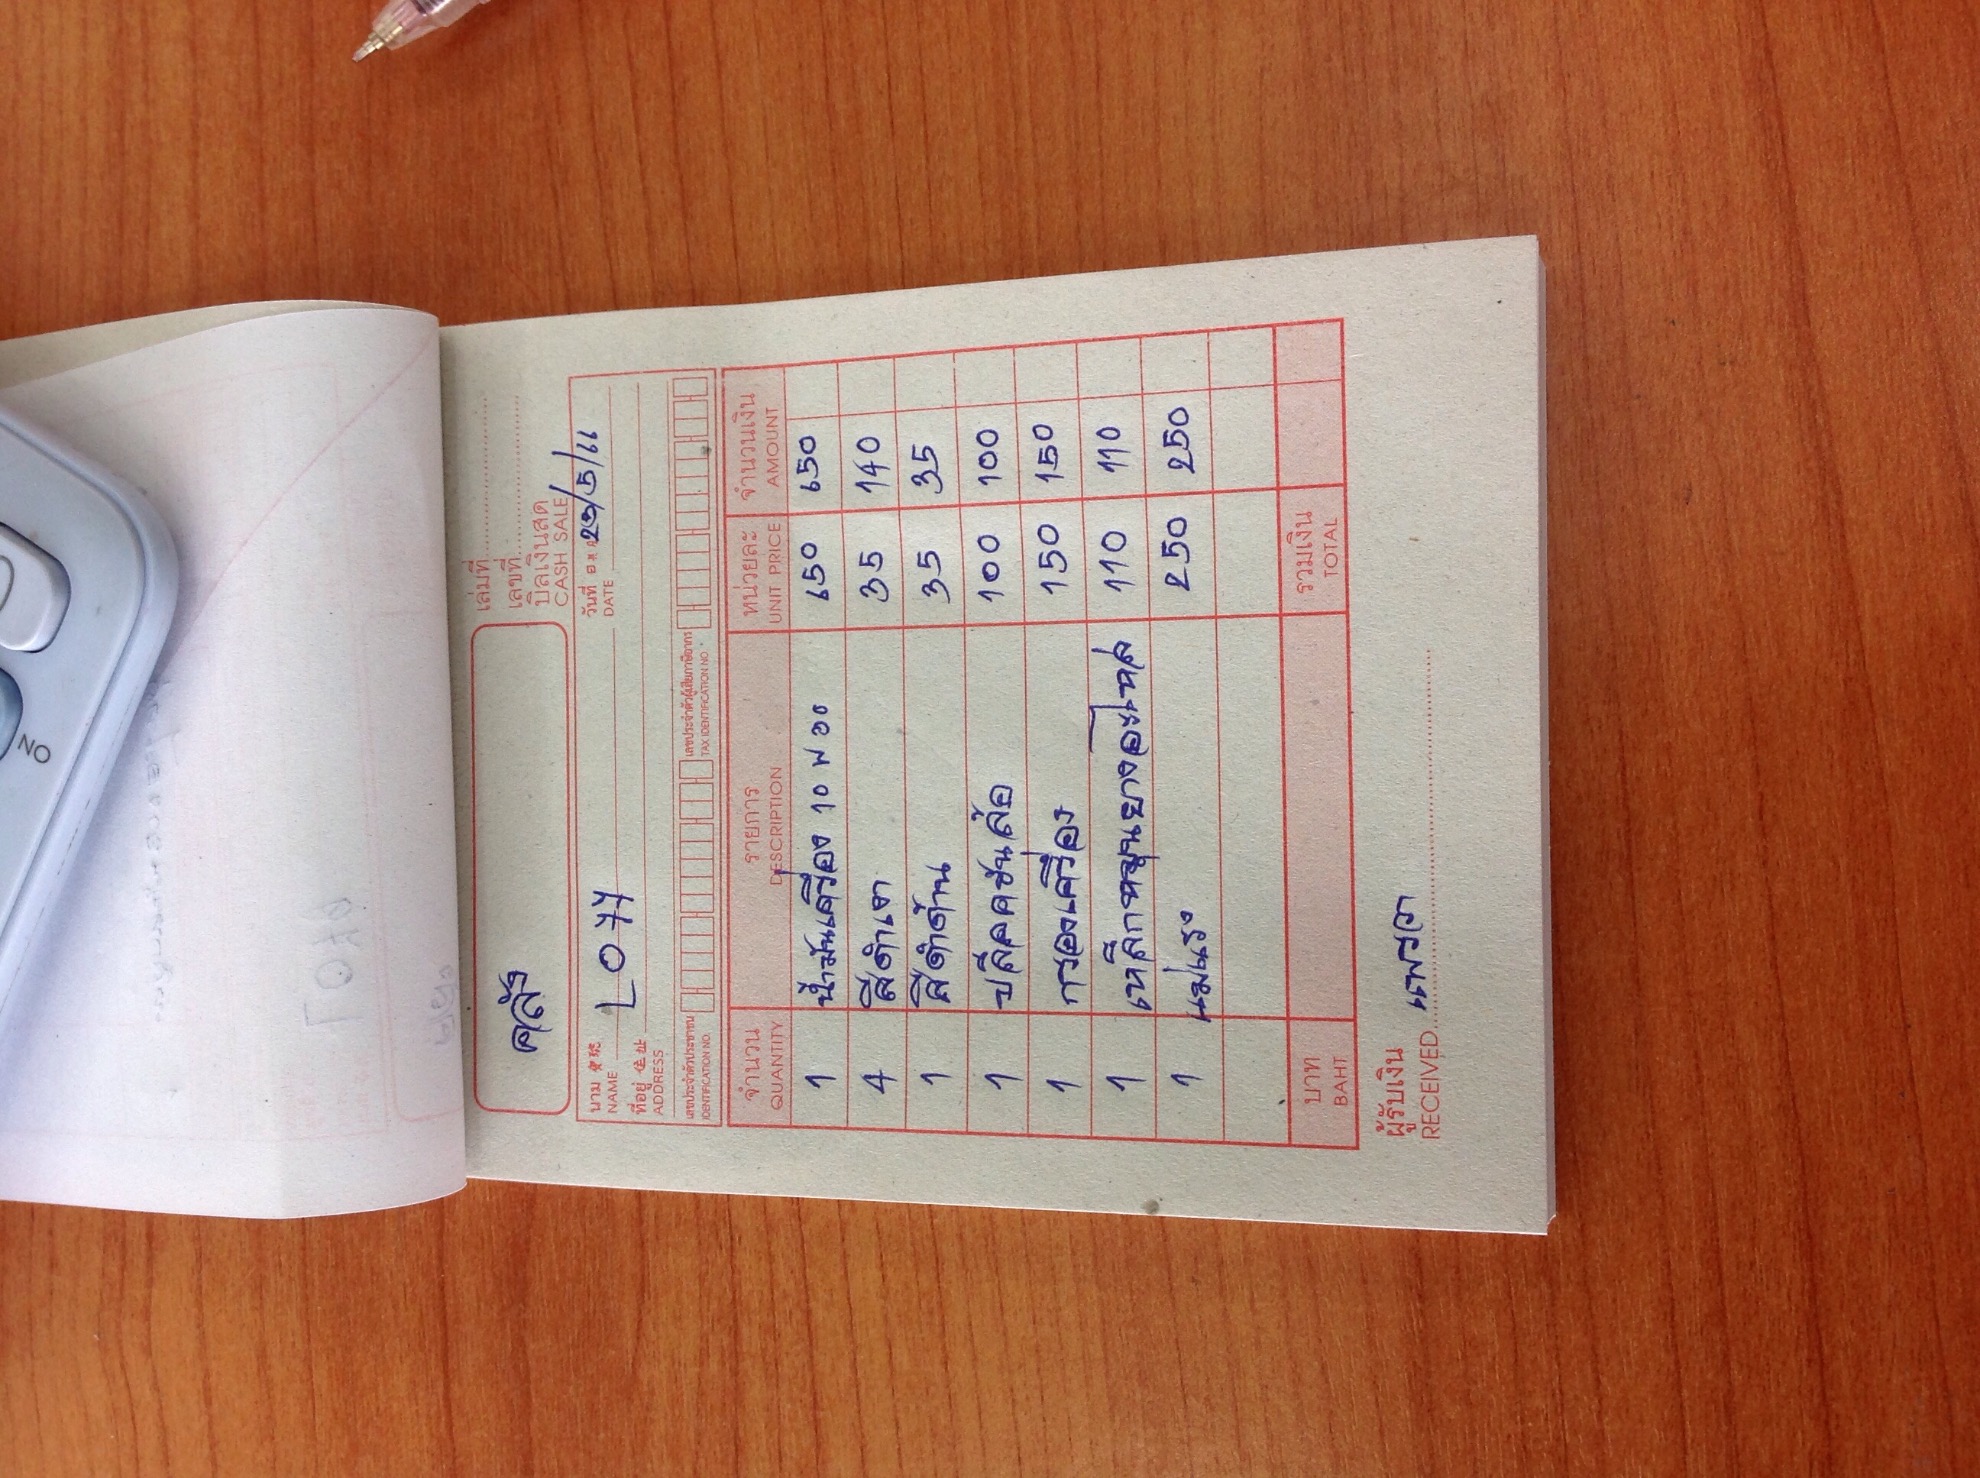 ON
เล่มที่
เลขที่
บิลเงินสด
CASH SALE
คลัง
นาม NAME L077
วันที่ DATE 29/5/66
ที่อยู่ ADDRESS
เลขประจำตัวประชาชน IDENTIFICATION NO. เลขประจำตัวผู้เสียภาษีอากร TAX IDENTIFICATION NO.
จำนวน รายการ หน่วยละ จำนวนเงิน
QUANTITY DESCRIPTION UNIT PRICE AMOUNT
1 น้ำมันเครื่อง 10 650 650
4 สีดำเงา 35 140
1 สีดำด้าน 35 35
1 ปลึคคชันล้อ 100 100
1 กรองเครื่อง 150 150
1 เหล็กหมุนยางอะไหล่ 110 110
1 แม่แรง 250 250
บาท รวมเงิน
BAHT TOTAL
ผู้รับเงิน
RECEIVED แพรวา